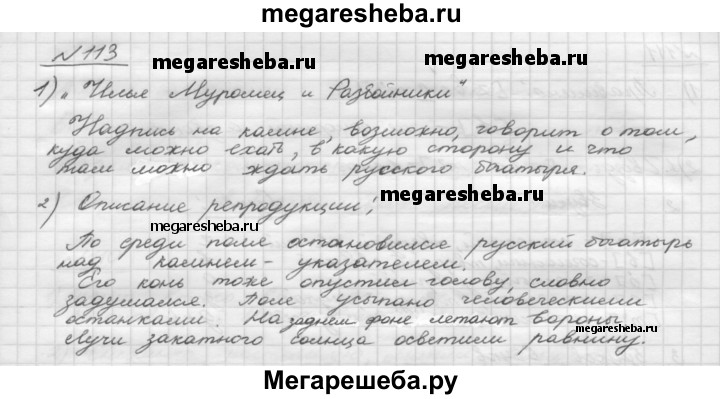 megaresheba.ru
№113 megaresheba.ru megaresheba.ru
1) „Илья Муромец и Разбойники"
Надпись на камне, возможно, говорит о том,
куда можно ехать, в какую сторону и что
там можно ждать русского богатыря.
megaresheba.ru
2) Описание репродукции:
megaresheba.ru
По среди поле остановился русский богатырь
над камнем-указателем.
Его конь тоже опустил голову, словно
задумался. Поле усыпано человеческими
останками. На заднем фоне летают вороны
megaresheba.ru
Лучи закатного солнца осветили равнину.
Мегарешеба.ру